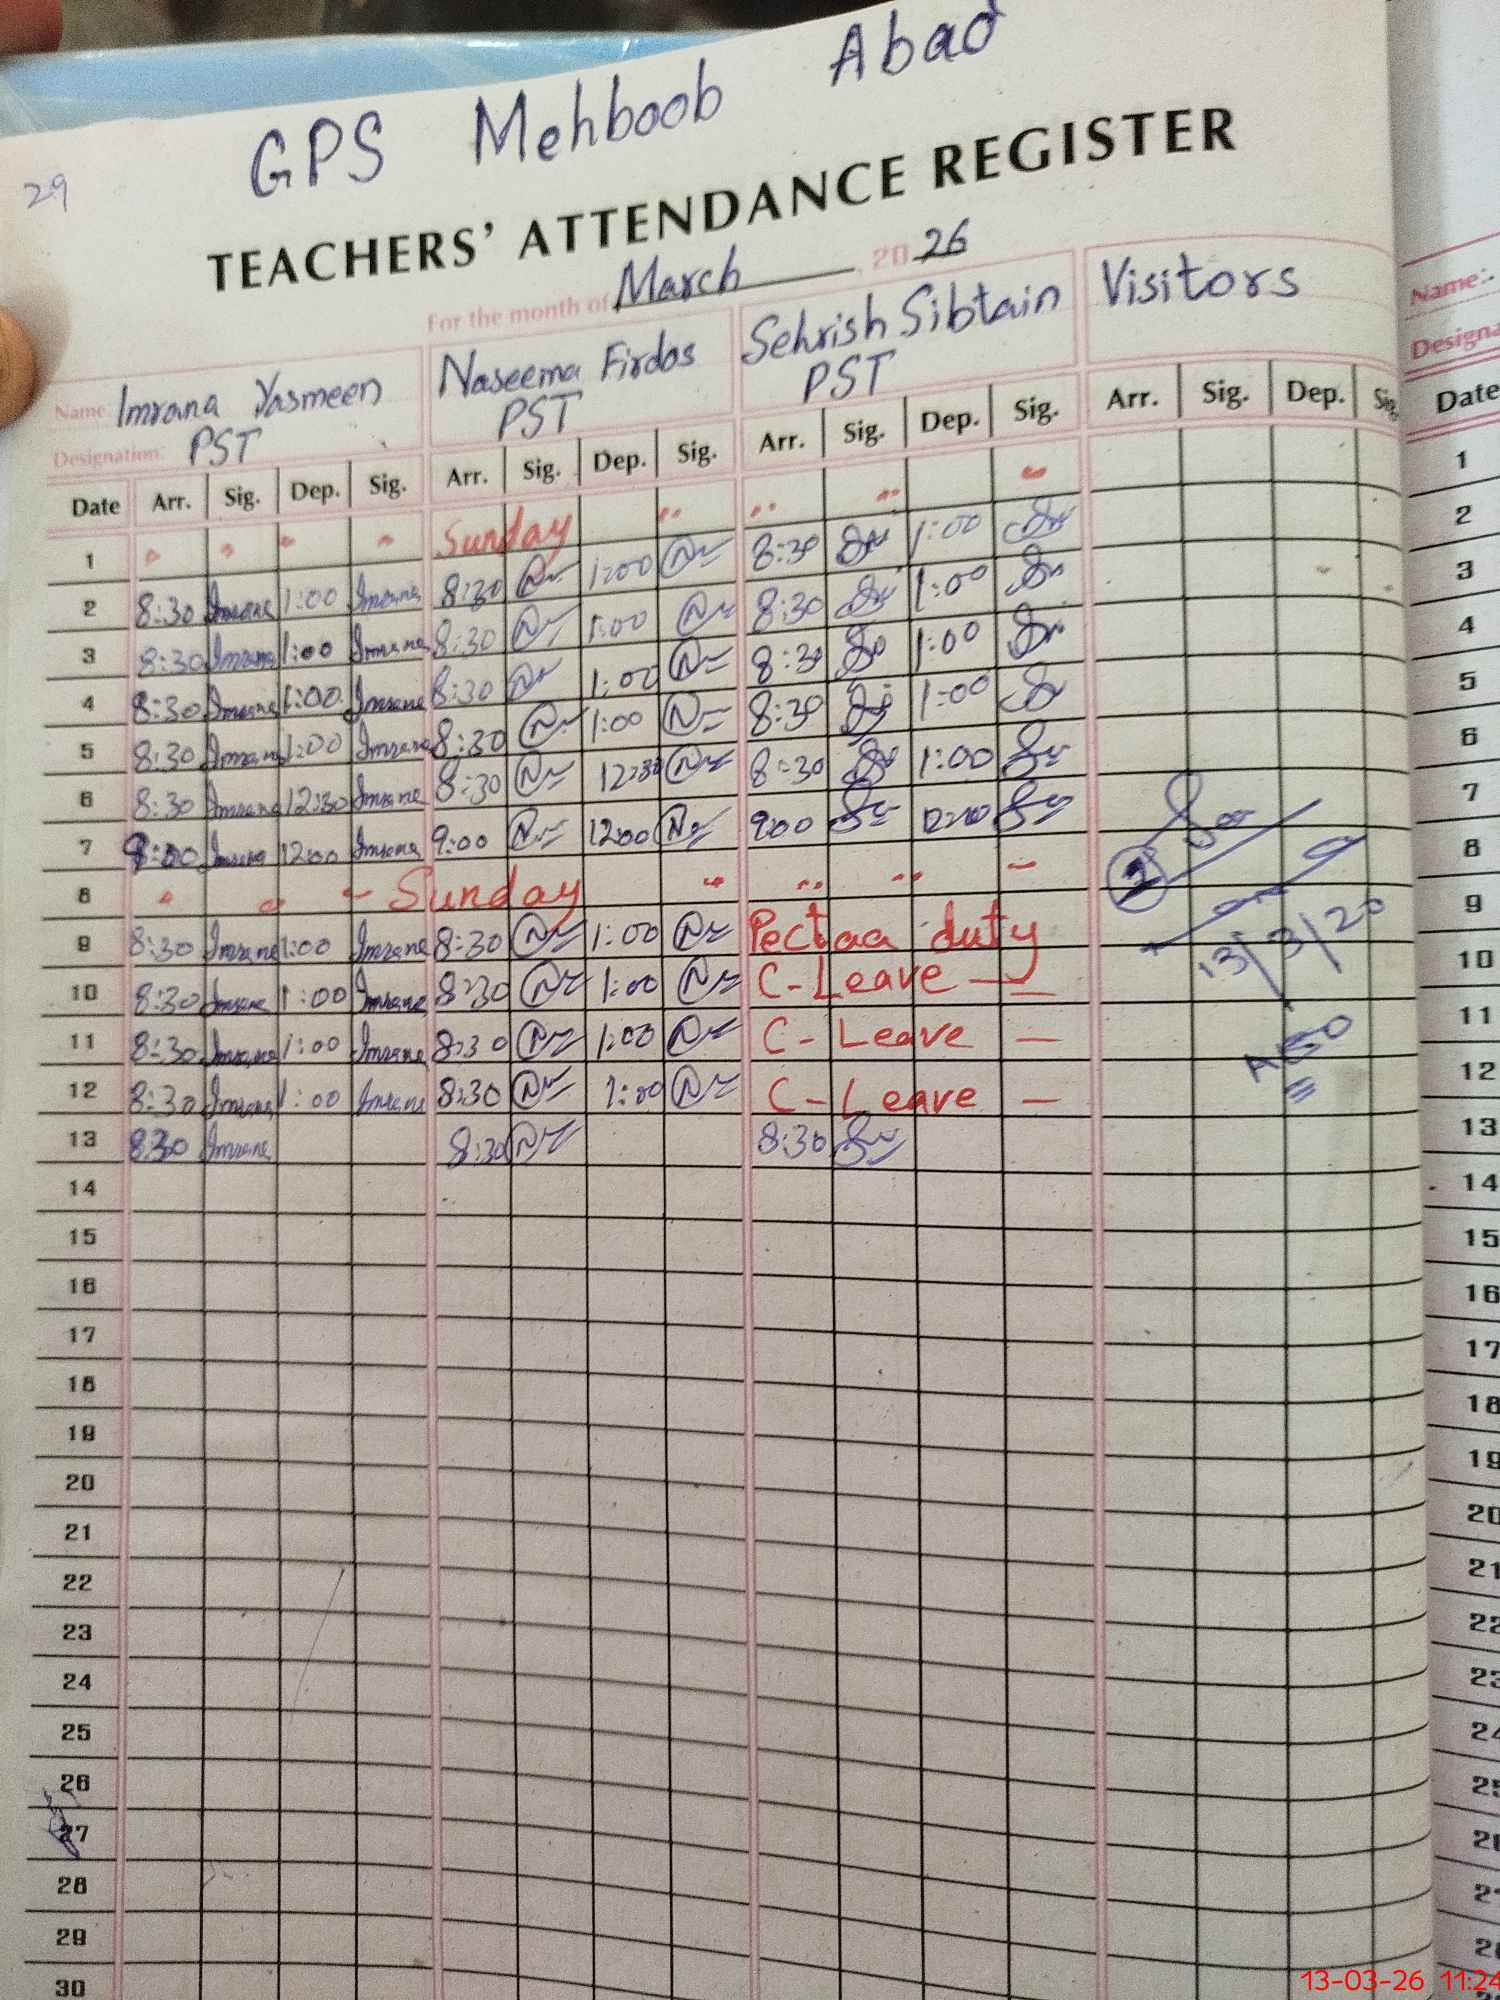 GPS Mehboob Abad
29
TEACHERS' ATTENDANCE REGISTER
For the month of March 2026
Name: Imrana Yasmeen Naseema Firdos Sehrish Sibtain Visitors
Designation: PST PST PST
Date Arr. Sig. Dep. Sig. Arr. Sig. Dep. Sig. Arr. Sig. Dep. Sig. Arr. Sig. Dep. Sig.
1 " " " " Sunday " " " "
2 8:30 Imrana 1:00 Imrana 8:30 1:00 8:30 1:00
3 8:30 Imrana 1:00 Imrana 8:30 1:00 8:30 1:00
4 8:30 Imrana 1:00 Imrana 8:30 1:00 8:30 1:00
5 8:30 Imrana 1:00 Imrana 8:30 1:00 8:30 1:00
6 8:30 Imrana 12:30 Imrana 8:30 12:30 8:30 1:00
7 9:00 Imrana 12:00 Imrana 9:00 12:00 9:00 12:00
8 " " " Sunday " " " "
9 8:30 Imrana 1:00 Imrana 8:30 1:00 Pectaa duty
10 8:30 Imrana 1:00 Imrana 8:30 1:00 C-Leave
11 8:30 Imrana 1:00 Imrana 8:30 1:00 C-Leave
12 8:30 Imrana 1:00 Imrana 8:30 1:00 C-Leave
13 8:30 Imrana 8:30 8:30
14
15
16
17
18
19
20
21
22
23
24
25
26
27
28
29
30
2
AEO
Name:-
Designa
Date
1
2
3
4
5
6
7
8
9
10
11
12
13
14
15
16
17
18
19
20
21
22
23
24
13-03-26 11:24